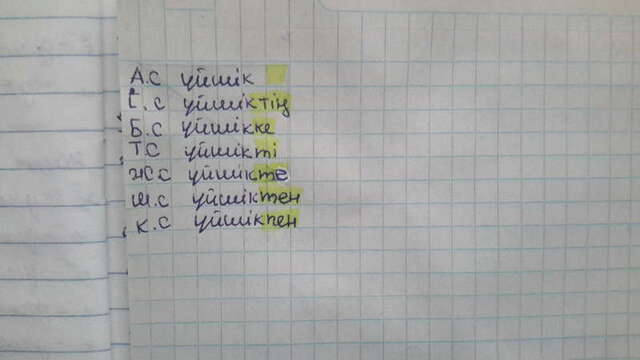 А.С үйшік
І.С үйшіктің
Б.С үйшікке
Т.С үйшікті
Ж.С үйшікте
Ш.С үйшіктен
К.С үйшікпен